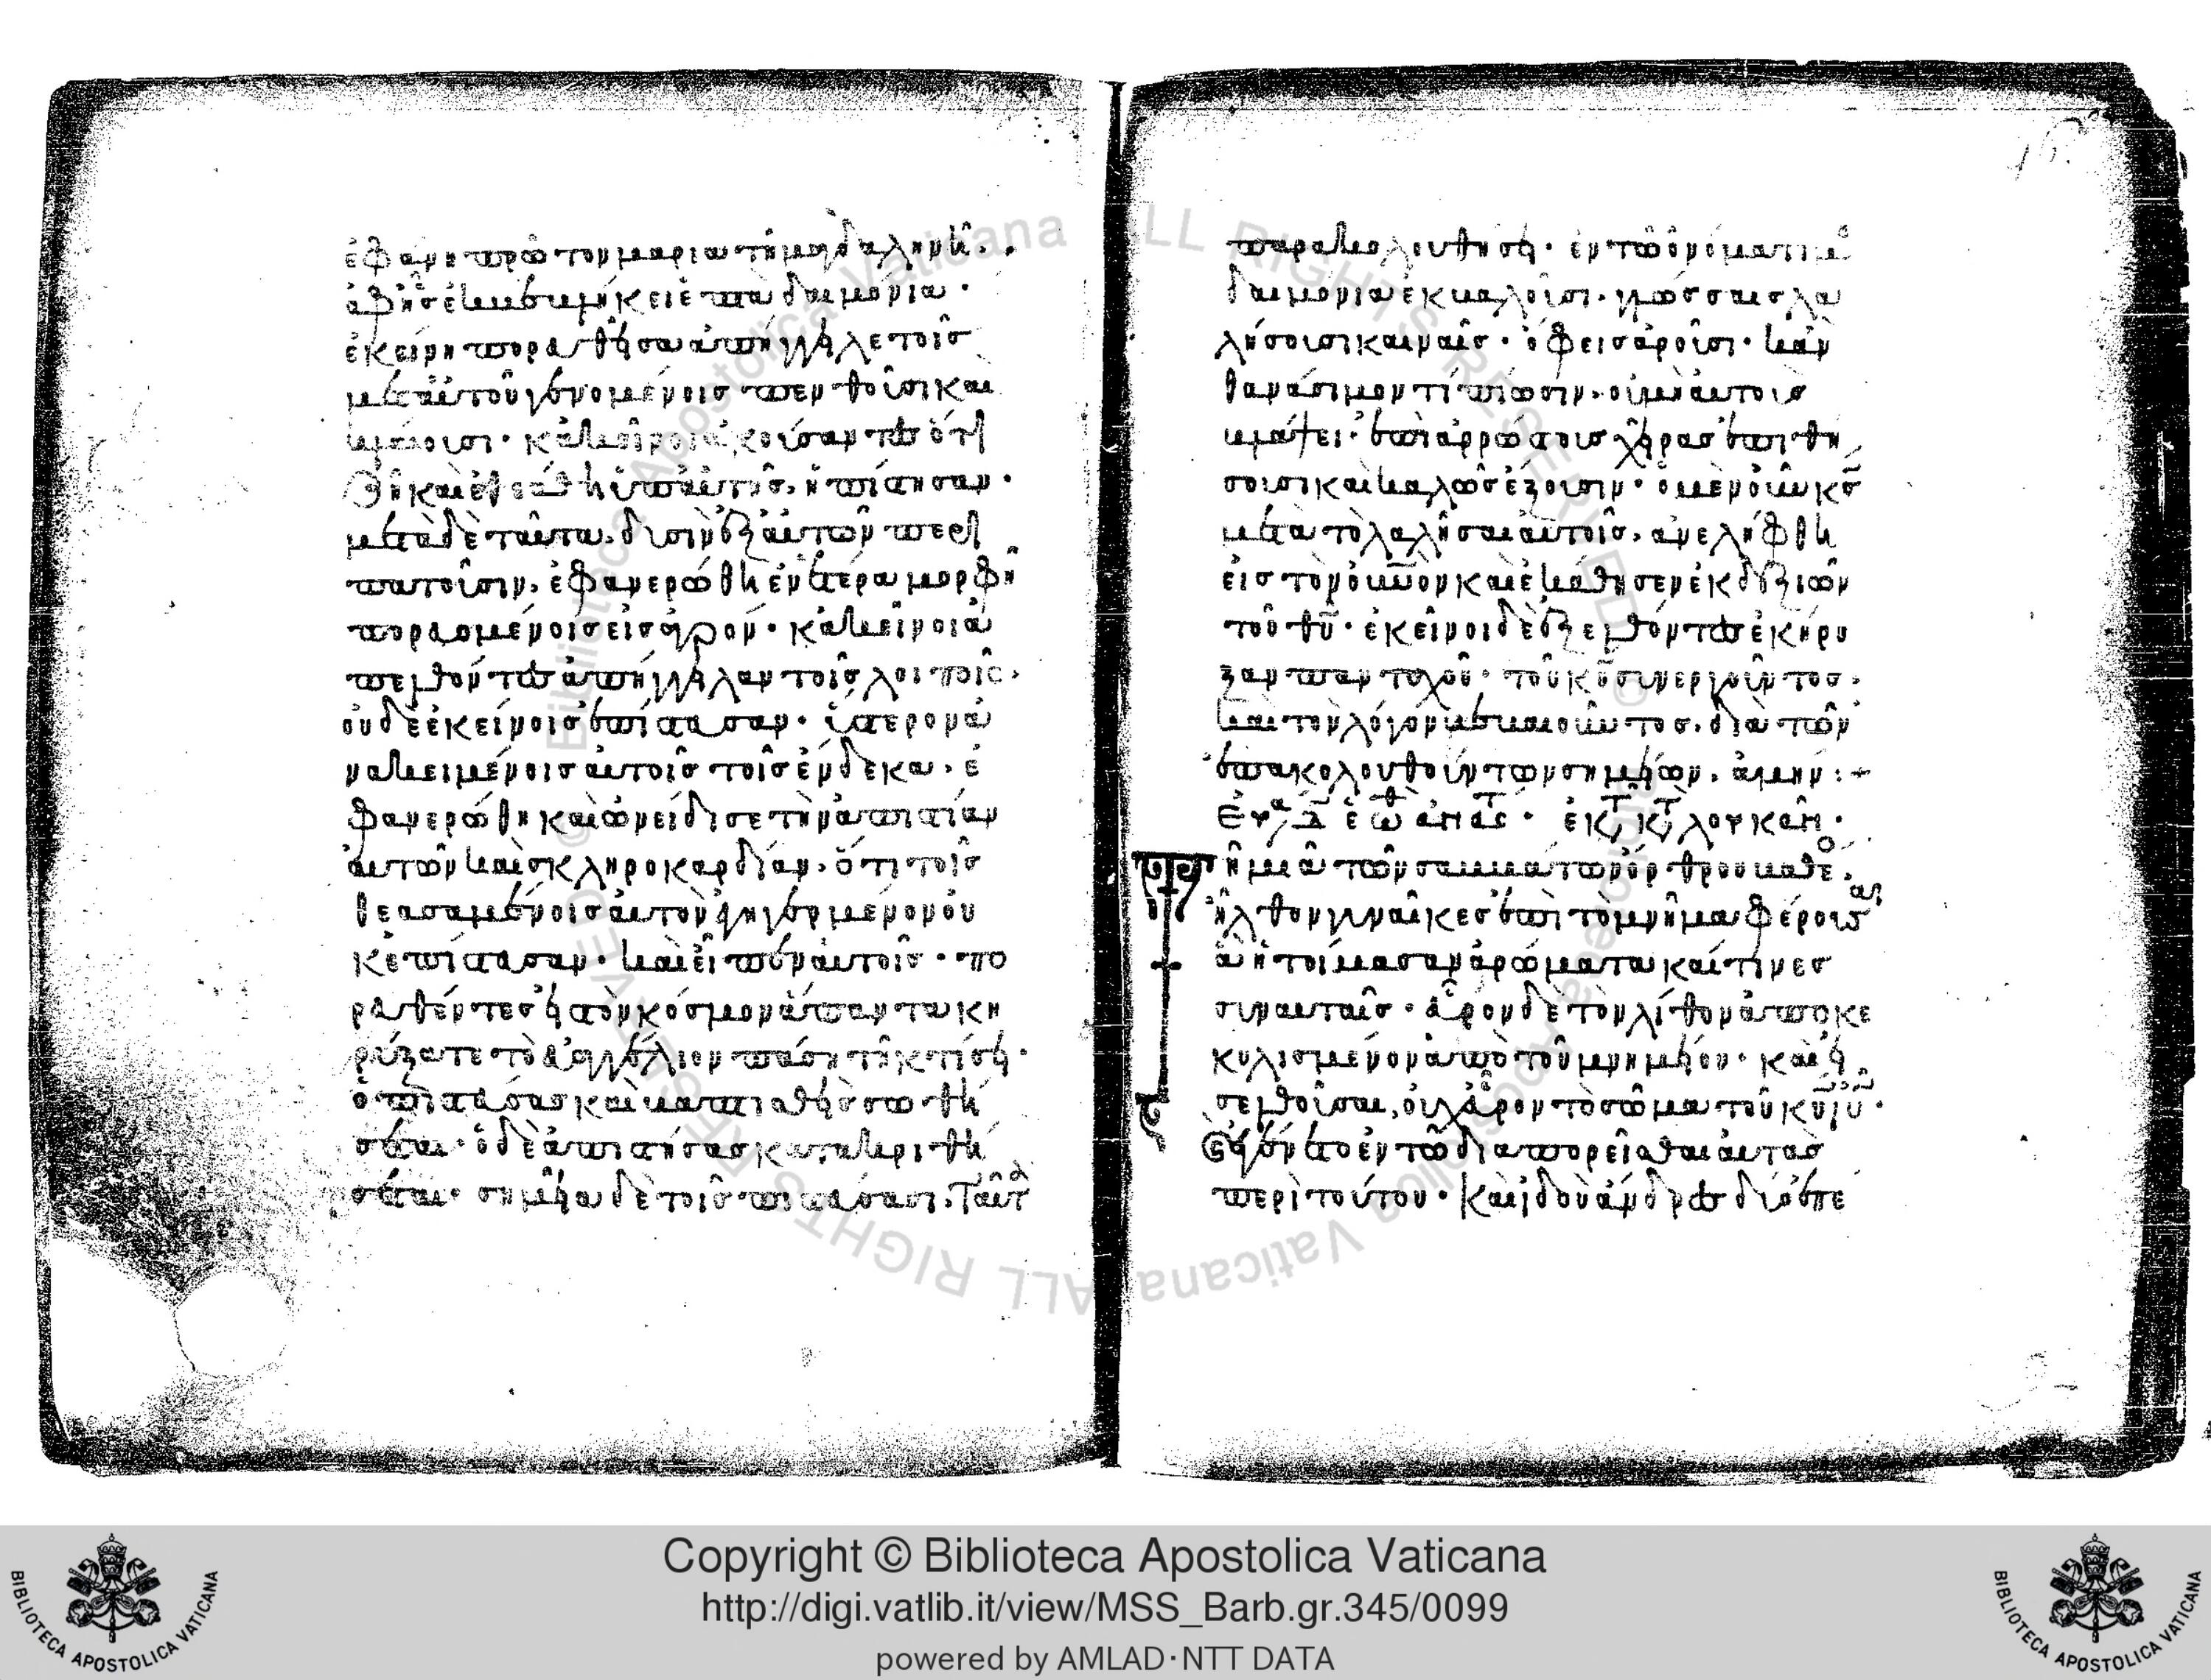 ἐφάνη πρῶτον μαρία τῆ μαγδαληνῆ.
ἀφ ῆς ἐκβεβλήκει ἑπτὰ δαιμόνια.
ἐκείνη πορευθεῖσα ἀπήγγειλε τοῖς
μετ αὐτοῦ γενομένοις πενθοῦσι καὶ
κλαίουσι. κἀκεῖνοι ἀκούσαντες ὅτι
ζῆ καὶ ἐθεάθη ὑπ αὐτῆς, ἠπίστησαν.
μετὰ δὲ ταῦτα, δυσὶν ἐξ αὐτῶν περι
πατοῦσιν, ἐφανερώθη ἐν ἑτέρα μορφῆ
πορευομένοις εἰς ἀγρόν. κἀκεῖνοι ἀ
πελθόντες ἀπήγγειλαν τοῖς λοιποῖς.
οὐδὲ ἐκείνοις ἐπίστευσαν. ὕστερον ἀ
νακειμένοις αὐτοῖς τοῖς ἕνδεκα, ἐ
φανερώθη καὶ ὠνείδισε τὴν ἀπιστίαν
αὐτῶν καὶ σκληροκαρδίαν, ὅτι τοῖς
θεασαμένοις αὐτὸν ἐγηγερμένον οὐ
κ ἐπίστευσαν. καὶ εἶπεν αὐτοῖς. πο
ρευθέντες εἰς τὸν κόσμον ἅπαντα κη
ρύξατε τὸ εὐαγγέλιον πάση τῆ κτίσει.
ὁ πιστεύσας καὶ βαπτισθεὶς σωθή
σεται. ὁ δὲ ἀπιστήσας κατακριθή
σεται. σημεῖα δὲ τοῖς πιστεύσασι, ταῦτ
παρακολουθήσει. ἐν τῶ ὀνόματί μου
δαιμόνια ἐκβαλοῦσι. γλώσσαις λα
λήσουσι καιναῖς. ὄφεις ἀροῦσι. κἂν
θανάσιμόν τι πίωσιν, οὐ μὴ αὐτοὺς
βλάψει. ἐπὶ ἀρρώστους χεῖρας ἐπιθή
σουσι καὶ καλῶς ἕξουσιν. ὁ μὲν οὖν κς
μετὰ τὸ λαλῆσαι αὐτοῖς, ἀνελήφθη
εἰς τὸν οὐνον καὶ ἐκάθησεν ἐκ δεξιῶν
τοῦ θυ. ἐκεῖνοι δὲ ἐξελθόντες ἐκήρυ
ξαν πανταχοῦ. τοῦ κυ συνεργοῦντος.
καὶ τὸν λόγον βεβαιοῦντος, διὰ τῶν
ἐπακολουθούντων σημείων. ἀμήν:+
ἐκ τ κτ λουκᾶν.
τῆ μιᾶ τῶν σαββάτων ὄρθρου βαθέο
ἦλθον γυναῖκες ἐπὶ τὸ μνῆμα φέρουσαι
ἃ ἡτοίμασαν ἀρώματα καί τινες
σὺν αὐταῖς. εὗρον δὲ τὸν λίθον ἀποκε
κυλισμένον ἀπὸ τοῦ μνημείου. καὶ εἰ
σελθοῦσαι, οὐχ εὗρον τὸ σῶμα τοῦ κυ ιυ.
Καὶ ἐγένετο ἐν τῶ διαπορεῖσθαι αὐτὰς
περὶ τούτου. καὶ ἰδοὺ ἄνδρες δύο ἐπέ
Copyright © Biblioteca Apostolica Vaticana
http://digi.vatlib.it/view/MSS_Barb.gr.345/0099
powered by AMLAD·NTT DATA